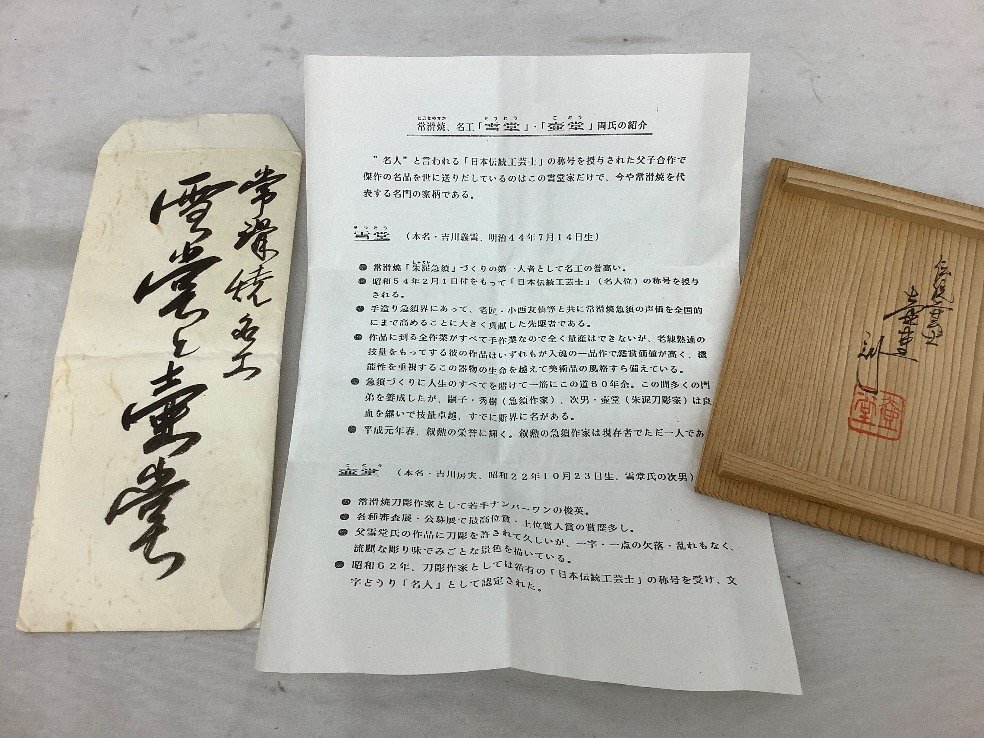 常滑焼名工
雪堂と壷堂
とこなめやき
せつどう
こどう
常滑焼、名工「雪堂」・「壷堂」両氏の紹介
"名人"と言われる「日本伝統工芸士」の称号を授与された父子合作で
傑作の名品を世に送りだしているのはこの雪堂家だけで、今や常滑焼を代
表する名門の家柄である。
せつどう
雪堂 (本名・吉川義雪、明治44年7月14日生)
● 常滑焼「朱泥急須」づくりの第一人者として名工の誉高い。
● 昭和54年2月1日付をもって「日本伝統工芸士」(名人位)の称号を授与
される。
● 手造り急須界にあって、名匠・小西友仙等と共に常滑焼急須の声価を全国的
にまで高めることに大きく貢献した先駆者である。
● 作品に到る全作業がすべて手作業なので全く量産はできないが、老練熟達の
技量をもってする彼の作品はいずれもが入魂の一品作で鑑賞価値が高く、機
能性を重視するこの器物の生命を越えて美術品の風格すら備えている。
● 急須づくりに人生のすべてを賭けて一筋にこの道60年余。この間多くの門
弟を養成したが、嗣子・秀樹(急須作家)、次男・壷堂(朱泥刀彫家)は良
血を継いで技量卓越、すでに斯界に名がある。
● 平成元年春、叙勲の栄誉に輝く。叙勲の急須作家は現存者でただ一人であ
こどう
壷堂 (本名・吉川房夫、昭和22年10月23日生、雪堂氏の次男)
● 常滑焼刀彫作家として若手ナンバーワンの俊英。
● 各種審査展・公募展で最高位賞・上位賞入賞の賞歴多し。
● 父雪堂氏の作品に刀彫を許されて久しいが、一字・一点の欠落・乱れもなく、
流麗な彫り味でみごとな景色を描いている。
● 昭和62年、刀彫作家としては希有の「日本伝統工芸士」の称号を受け、文
字どうり「名人」として認定された。
伝統工芸士
壷堂
刻
壷堂